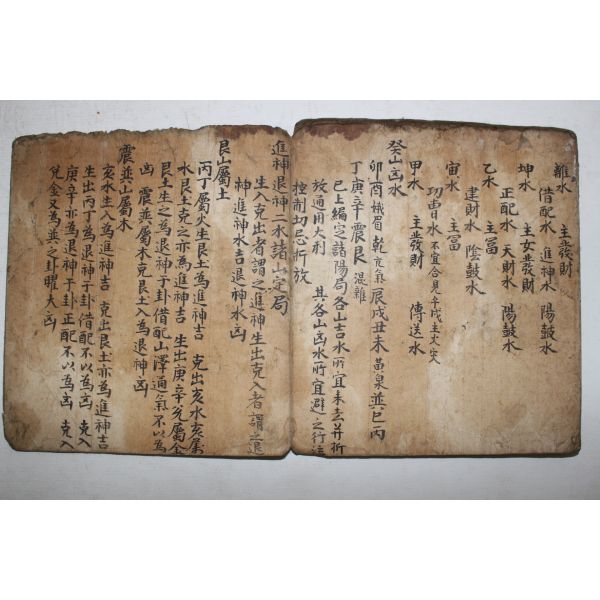 離水 主發財
借配水 進神水 陽鼓水
坤水 主女發財
正配水 天財水 陽鼓水
乙水 主富
建財水 陰鼓水
寅水 主富
功曹水 不宜合見午戌主火灾
甲水 主發財 傳送水
癸山凶水
卯酉 眉 乾 氣 辰戌丑未 黃泉 巽巳丙
丁庚辛震艮 混雜
已上編定諸陽局各山吉水所宜未去并折
放通用大利 其各山凶水所宜避之行
控制切忌折放
進神退神二水諸山定局
生入克出者謂之進神生出克入者謂之退
神進神水吉退神水凶
艮山屬土
丙丁屬火生艮土為進神吉 克出亥水亥屬
水艮土克之亦為進神吉 生出庚辛兌屬金
艮土生之為退神于卦借配山澤通氣不以為
凶 震巽屬木克艮土入為退神凶
震巽山屬木
亥水生入為進神吉 克出艮土亦為進神吉
生出丙丁為退神于卦借配不以為凶 克入
庚辛亦為退神于卦正配不以為凶 克入
兌金又為巽之卦曜大凶